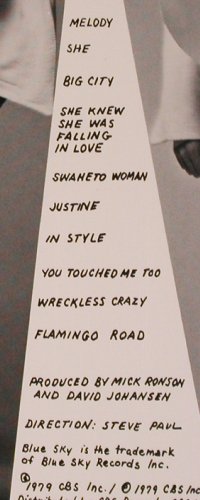 MELODY
SHE
BIG CITY
SHE KNEW
SHE WAS
FALLING
IN LOVE
SWAHETO WOMAN
JUSTINE
IN STYLE
YOU TOUCHED ME TOO
WRECKLESS CRAZY
FLAMINGO ROAD
PRODUCED BY MICK RONSON
AND DAVID JOHANSEN
DIRECTION: STEVE PAUL
Blue Sky is the trademark
of Blue Sky Records Inc.
© 1979 CBS Inc./ ℗ 1979 CBS Inc